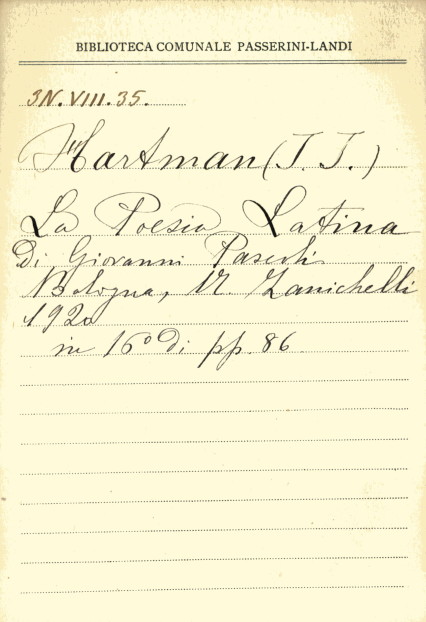 BIBLIOTECA COMUNALE PASSERINI-LANDI
3N.VIII.35.
Hartman (J. J.)
La Poesia Latina
Di Giovanni Pascoli
Bologna, N. Zanichelli
1920
in 16° di pp. 86